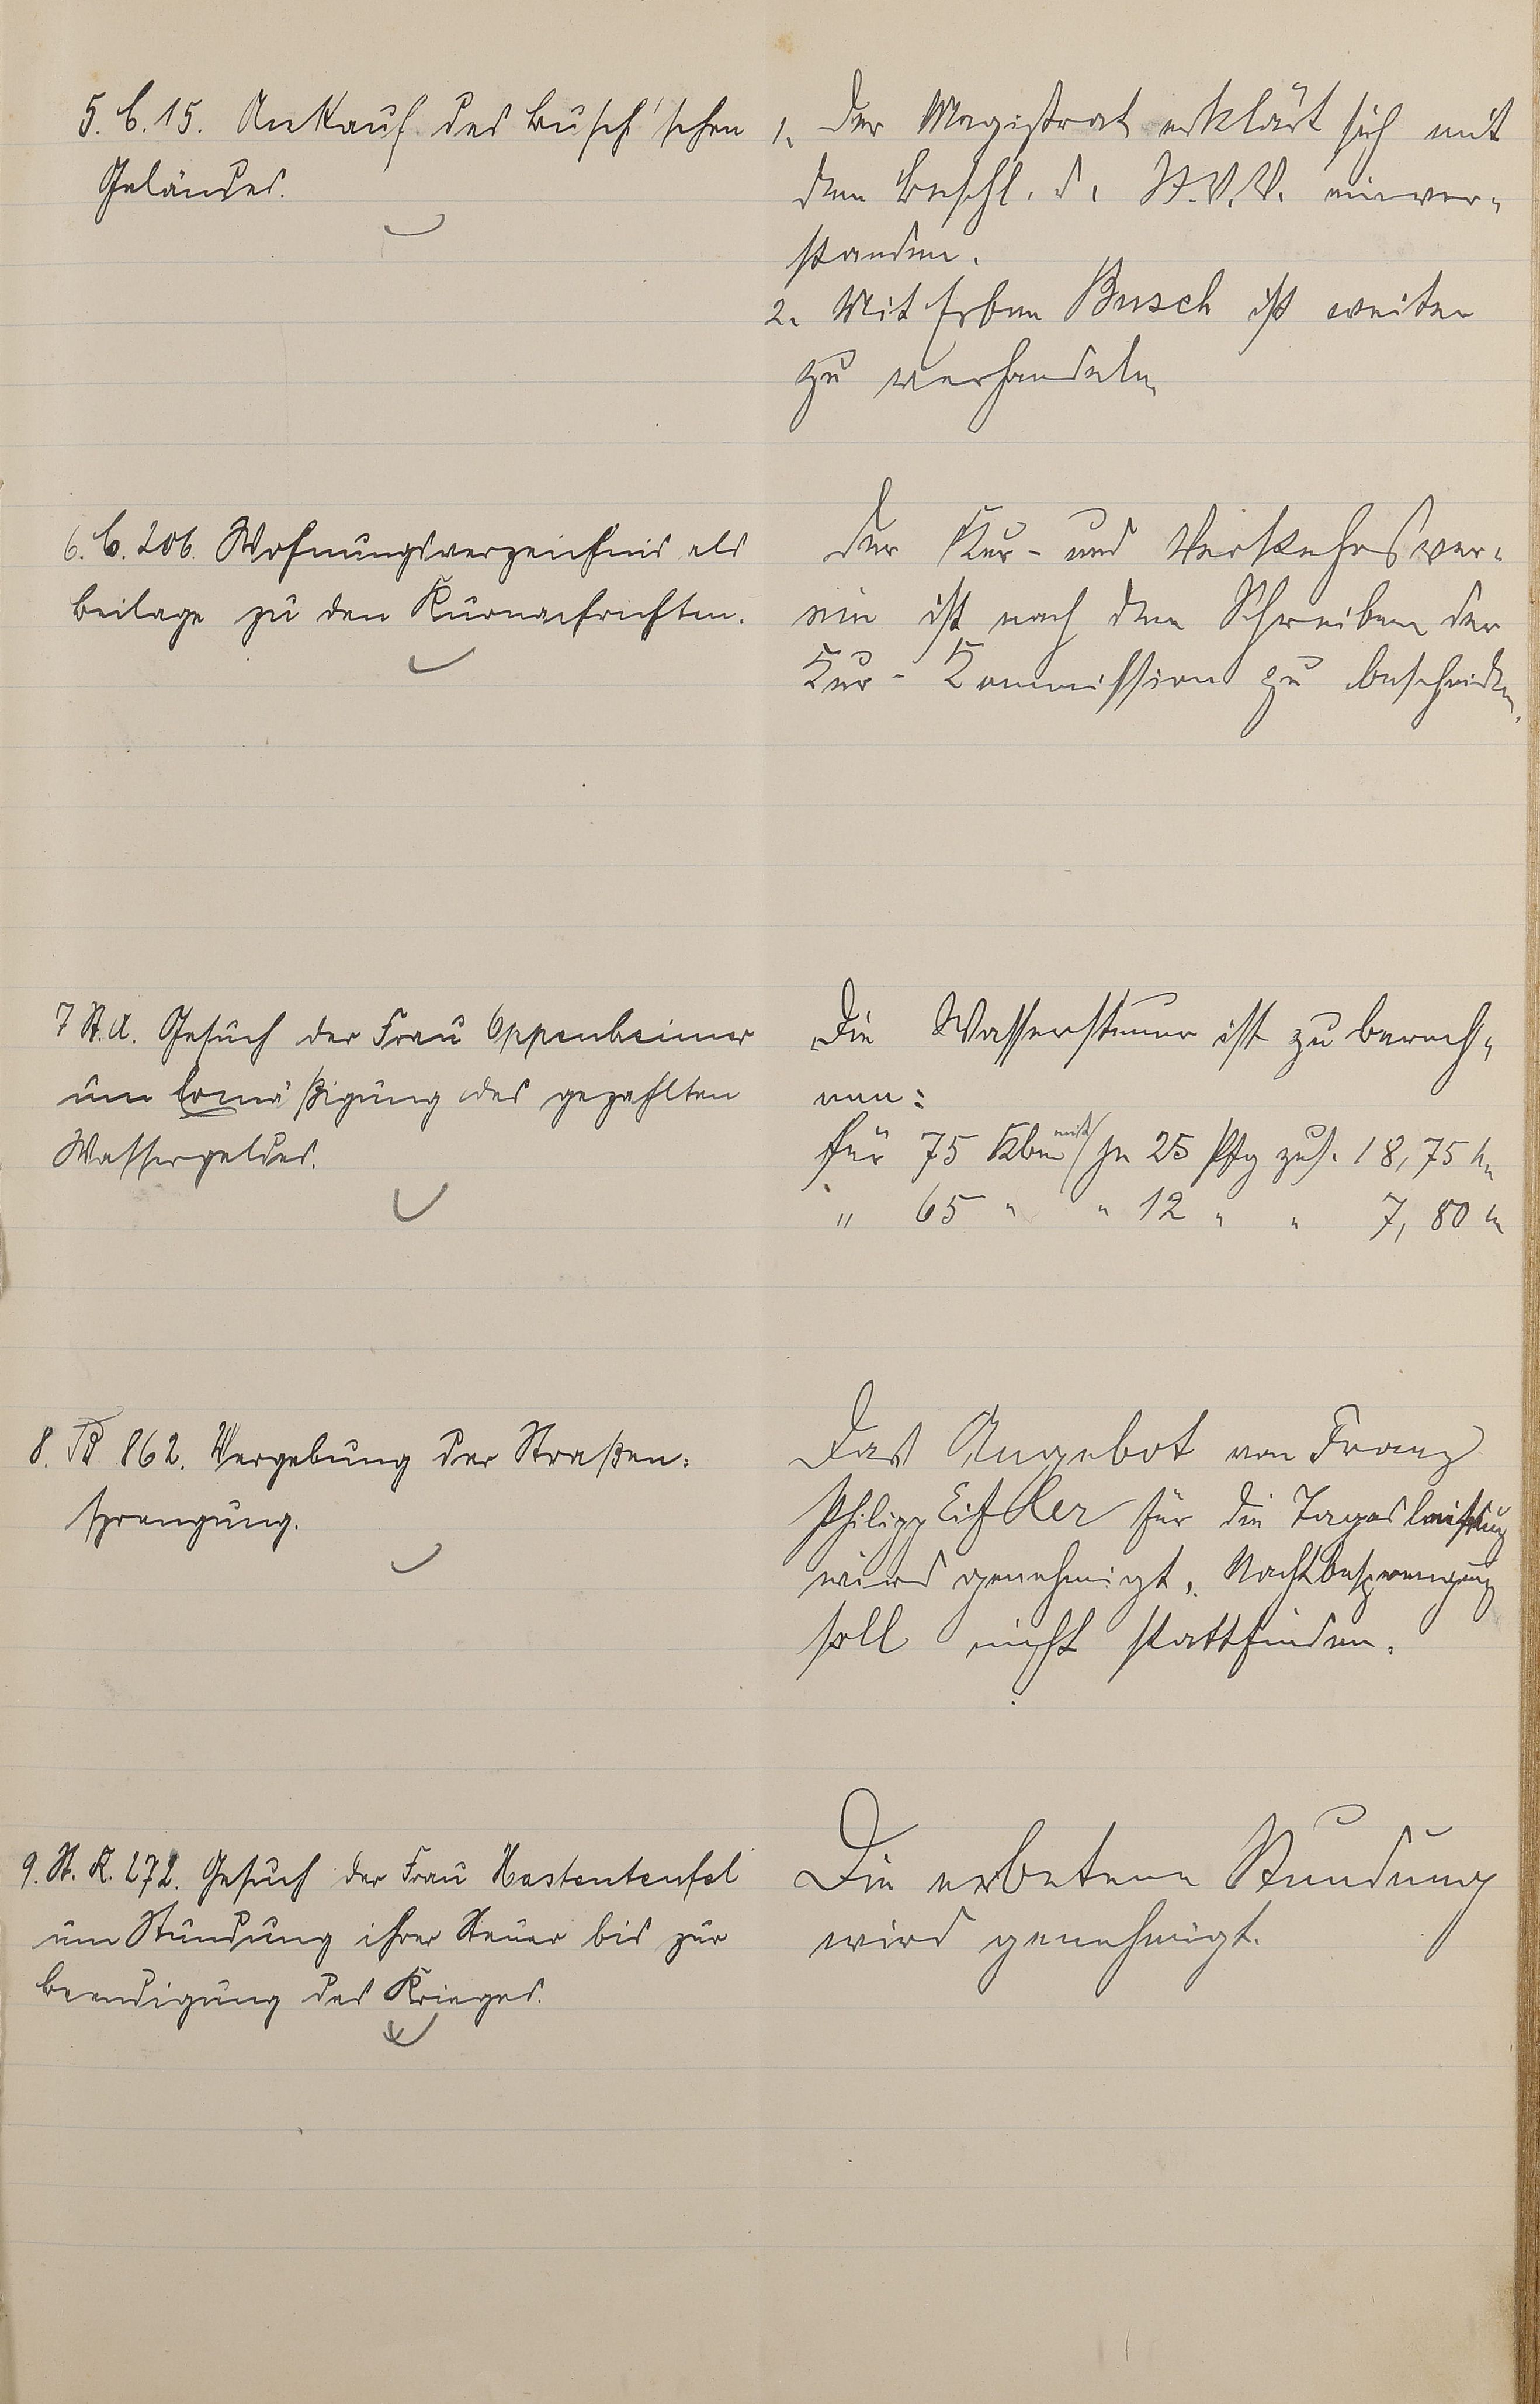 5. C. 15. Ankauf des Busch'schen
Geländes.
1. Der Magistrat erklärt sich mit
dem Beschl. d. St.V.V. einver-
standen.
2. Mit Erben Busch ist weiter
zu verhandeln
6. C. 206. Wohnungsverzeichnis als
Beilage zu den Kurnachrichten.
Der Kur- und Verkehrsver-
ein ist nach dem Schreiben der
Kur-Kommission zu bescheiden.
7 St. A. Gesuch der Frau Oppenheimer
um Ermäßigung des gezahlten
Wassergeldes.
Die Wassersteuer ist zu berech-
nen:
für 75 Kbm mit je 25 Pfg zus. 18,75 M
" 65 " " 12 " " 7,80 M
8. TB 862. Vergebung der Straßen-
sprengung.
Das Angebot von Franz
Philipp Eifler für die Tagesleistung
wird genehmigt. Nachtbesprengung
soll nicht stattfinden.
9. St. K. 272. Gesuch der Frau Hastenteufel
um Stundung ihrer Steuer bis zur
Beendigung des Krieges.
Die erbetene Stundung
wird genehmigt.